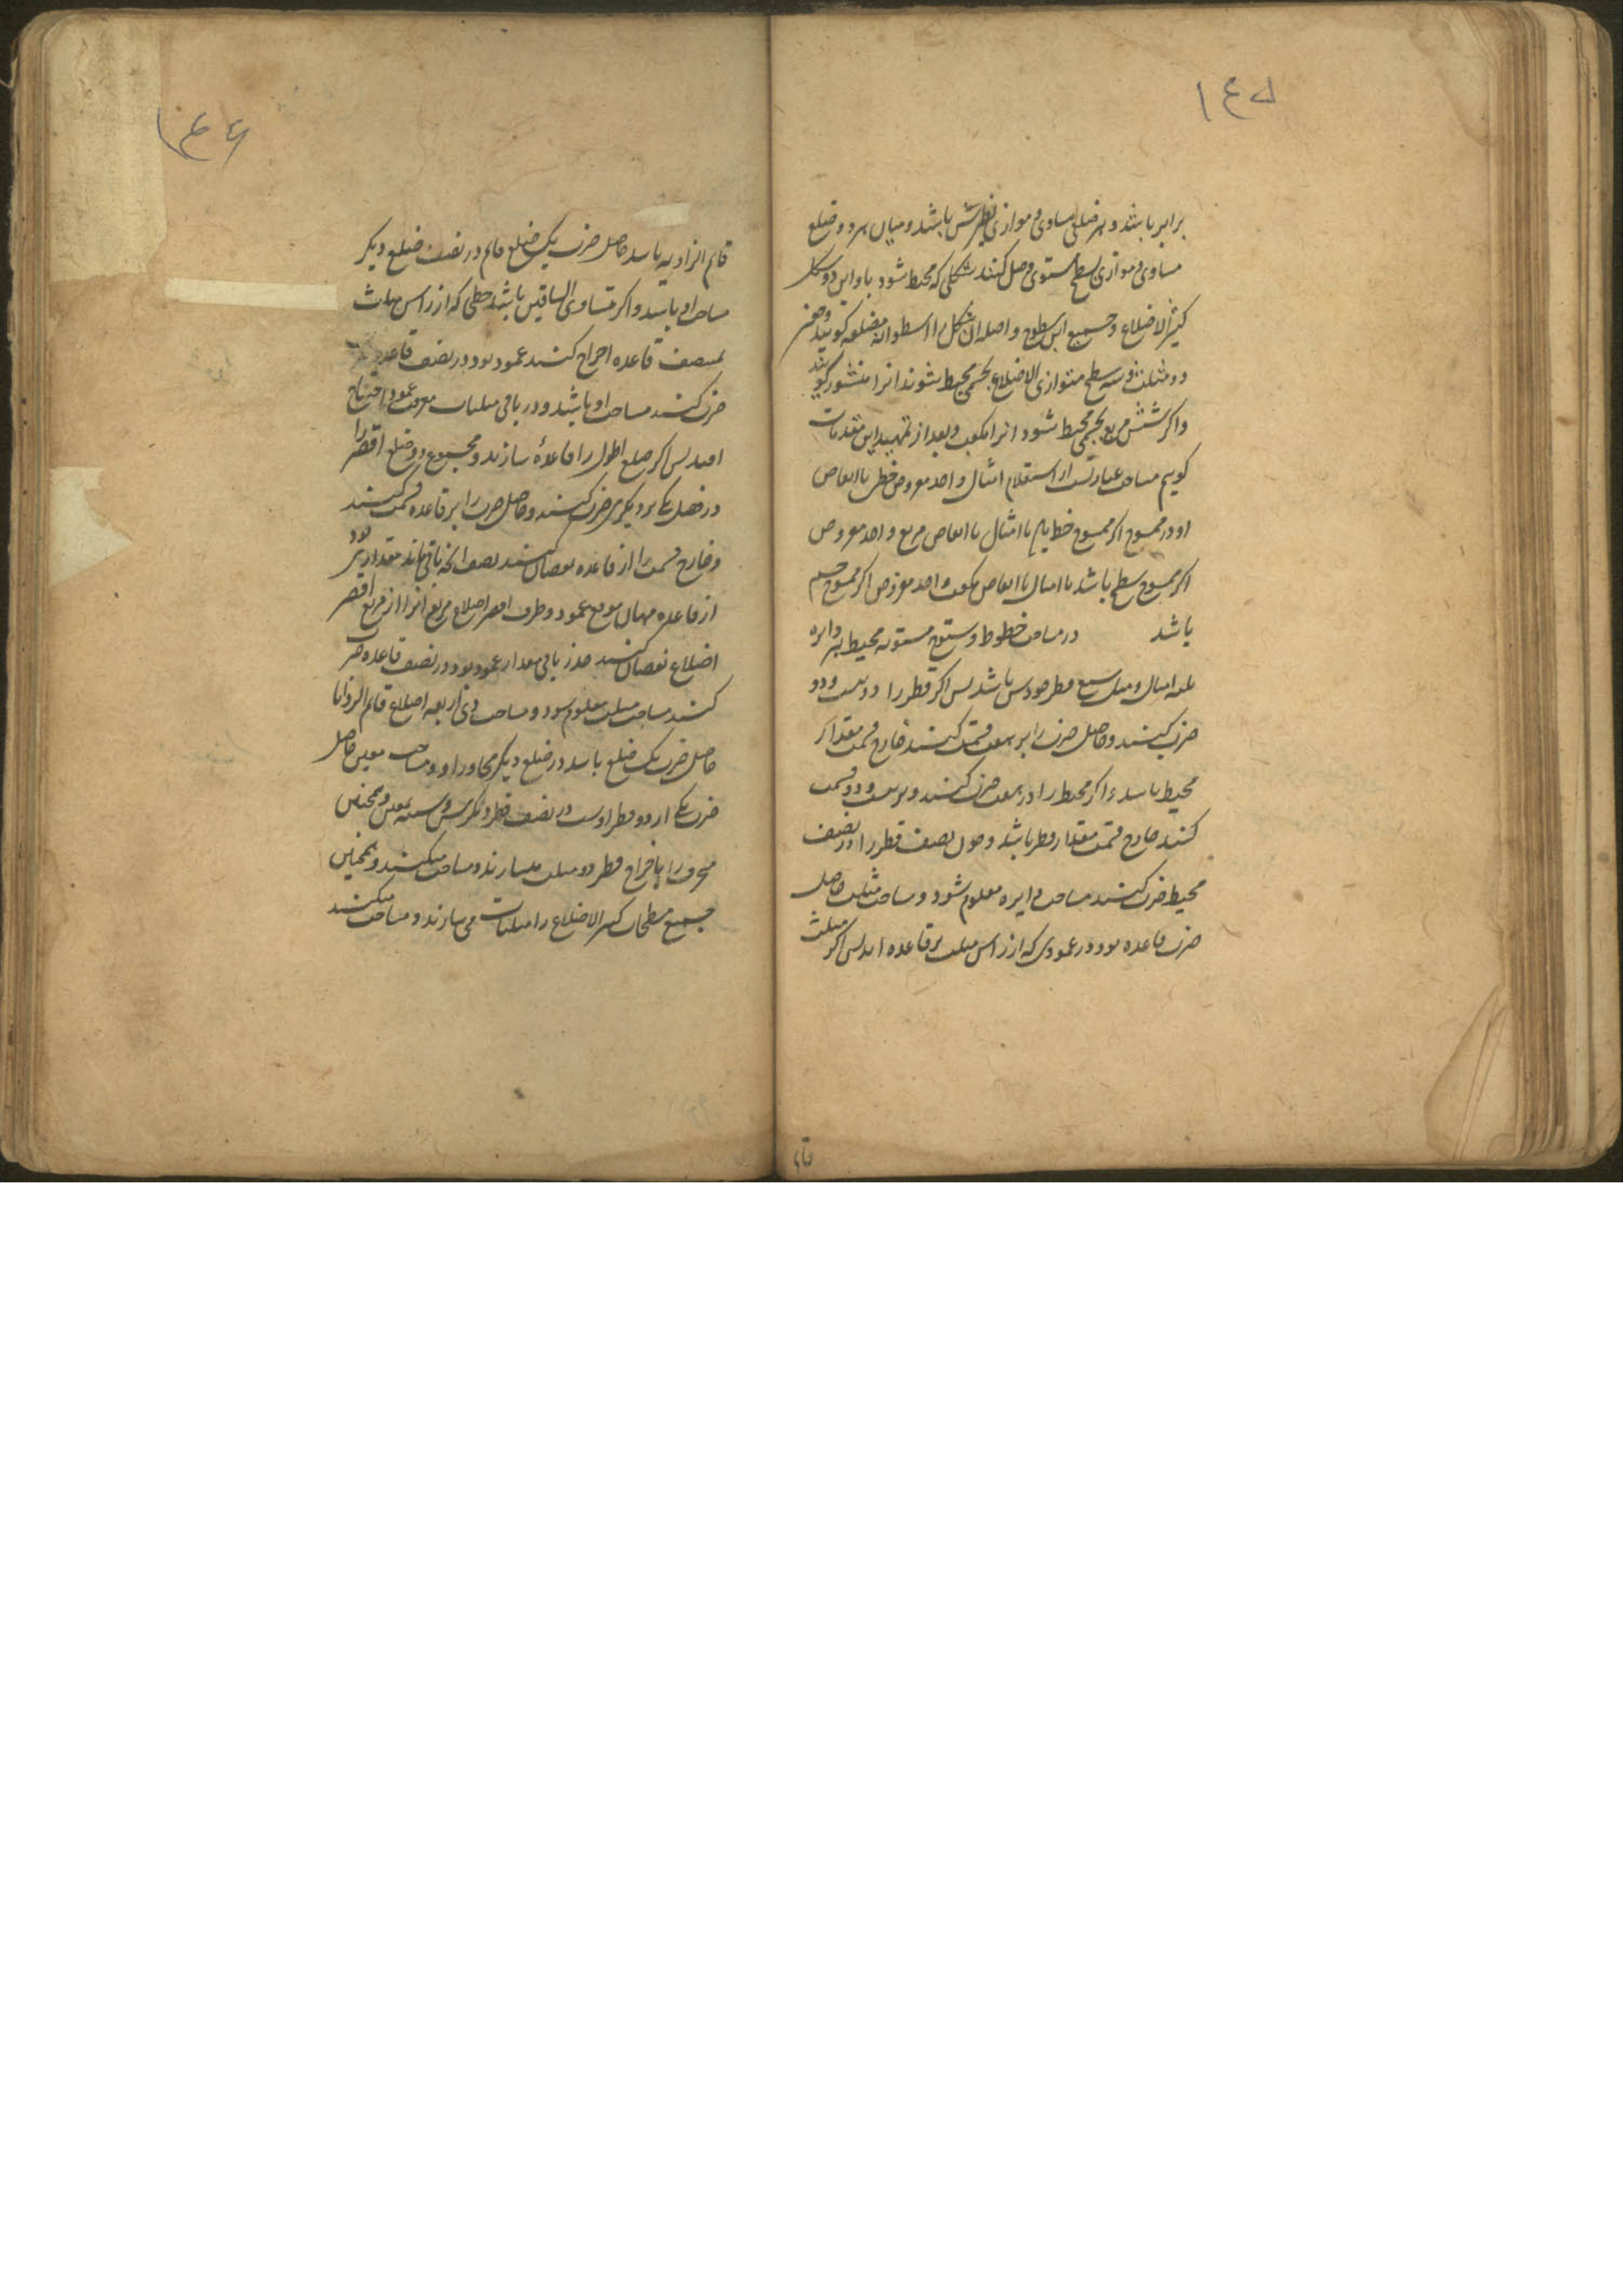 ١٤٥
برابر باشد و هر ضلعی مساوی و موازی نظیرش باشد و میان هر دو ضلع
مساوی و موازی سطح مستوی وصل کنند شکلی که محیط شود باو این دو شکل
کثیرالاضلاع و جمیع این سطوح واصله آن شکل را اسطوانه مضلعه گویند و چون
دو مثلث و سه سطح متوازی الاضلاع بجسمی محیط شوند انرا منشور گویند
و اگر شش مربع بجسمی محیط شود انرا مکعب و بعد از تمهید این مقدمات
گویم مساحت عبارتست از استعلام امثال واحد مفروض خطی یا ابعاض
او در ممسوح اگر ممسوح خط یا امثال یا ابعاض مربع واحد مفروض
اگر ممسوح سطح باشد یا امثال یا ابعاض مکعب واحد مفروض اگر ممسوح جسم
باشد در مساحت خطوط و سطوح مستویه محیط هر دایره
ثلثه امثال و مثل سبع قطر خودش باشد پس اگر قطر را در بیست و دو
ضرب کنند و حاصل ضرب را بر هفت قسمت کنند خارج قسمت مقدار
محیط باشد و اگر محیط را در هفت ضرب کنند و بر بیست و دو قسمت
کنند خارج قسمت مقدار قطر باشد و چون نصف قطر را در نصف
محیط ضرب کنند مساحت دایره معلوم شود و مساحت مثلث حاصل
ضرب قاعده بود در عمودی که از راس مثلث بر قاعده اید پس اگر مثلث
قایم
١٤٦
قایم الزاویه باشد حاصل ضرب یک ضلع قایم در نصف ضلع دیگر
مساحت او باشد و اگر متساوی الساقین باشد خطی که از راس مثلث
بمنتصف قاعده اخراج کنند عمود بود در نصف قاعده
ضرب کنند مساحت او باشد و در باقی مثلثات معرفت عمود احتیاج
افتد پس اگر ضلع اطول را قاعده سازند و مجموع دو ضلع اقصر را
در فضل یکی بر دیگری ضرب کنند و حاصل ضرب را بر قاعده قسمت کنند
و خارج قسمت را از قاعده نقصان کنند نصف انچه باقی ماند مقداری بود
از قاعده میان موقع عمود و طرف اقصر اضلاع مربع انرا از مربع اقصر
اضلاع نقصان کنند جذر باقی مقدار عمود بود در نصف قاعده ضرب
کنند مساحت مثلث معلوم شود و مساحت ذی اربعه اضلاع قایم الزوایا
حاصل ضرب یک ضلع باشد در ضلع دیگر مجاور او و مساحت معین حاصل
ضرب یکی از دو قطر اوست در نصف قطر دیگر و شبیه بمعین و همچنین
منحرف را باخراج قطر دو مثلث میسازند و مساحت میکنند و همچنین
جمیع مسطحات کثیر الاضلاع را مثلثات می سازند و مساحت میکنند